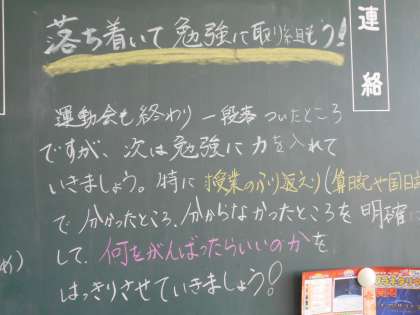 連絡
落ち着いて勉強に取り組もう!
運動会も終わり一段落ついたところ
ですが、次は勉強に力を入れて
いきましょう。特に授業のふり返り(算日記や国日
で分かったところ、分からなかったところを明確に
して、何をがんばったらいいのかを
はっきりさせていきましょう!
め)